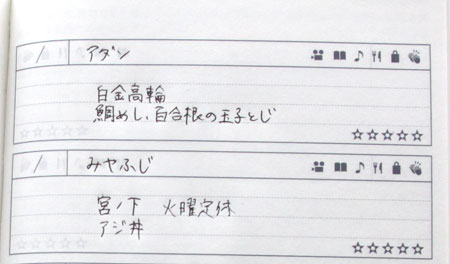 アダン
白金高輪
鯛めし、百合根の玉子とじ
☆☆☆☆☆
みやふじ
宮ノ下 火曜定休
アジ丼
☆☆☆☆☆